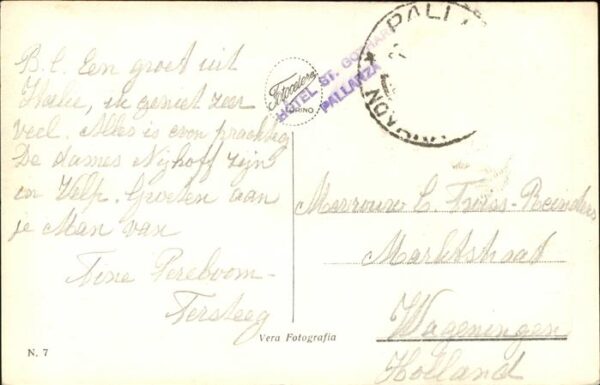 B.C. Een groet uit
Italie, ik geniet zeer
veel. Alles is even prachtig
De dames Nijhoff zijn
in Velp. Groeten aan
je Man van
Tine Pereboom-
Tersteeg
Fotocelere
TORINO
HOTEL ST. GOTHAR
PALLANZA
PALLA
Vera Fotografia
N. 7
Mevrouw C
Marktstraat
Wageningen
Holland